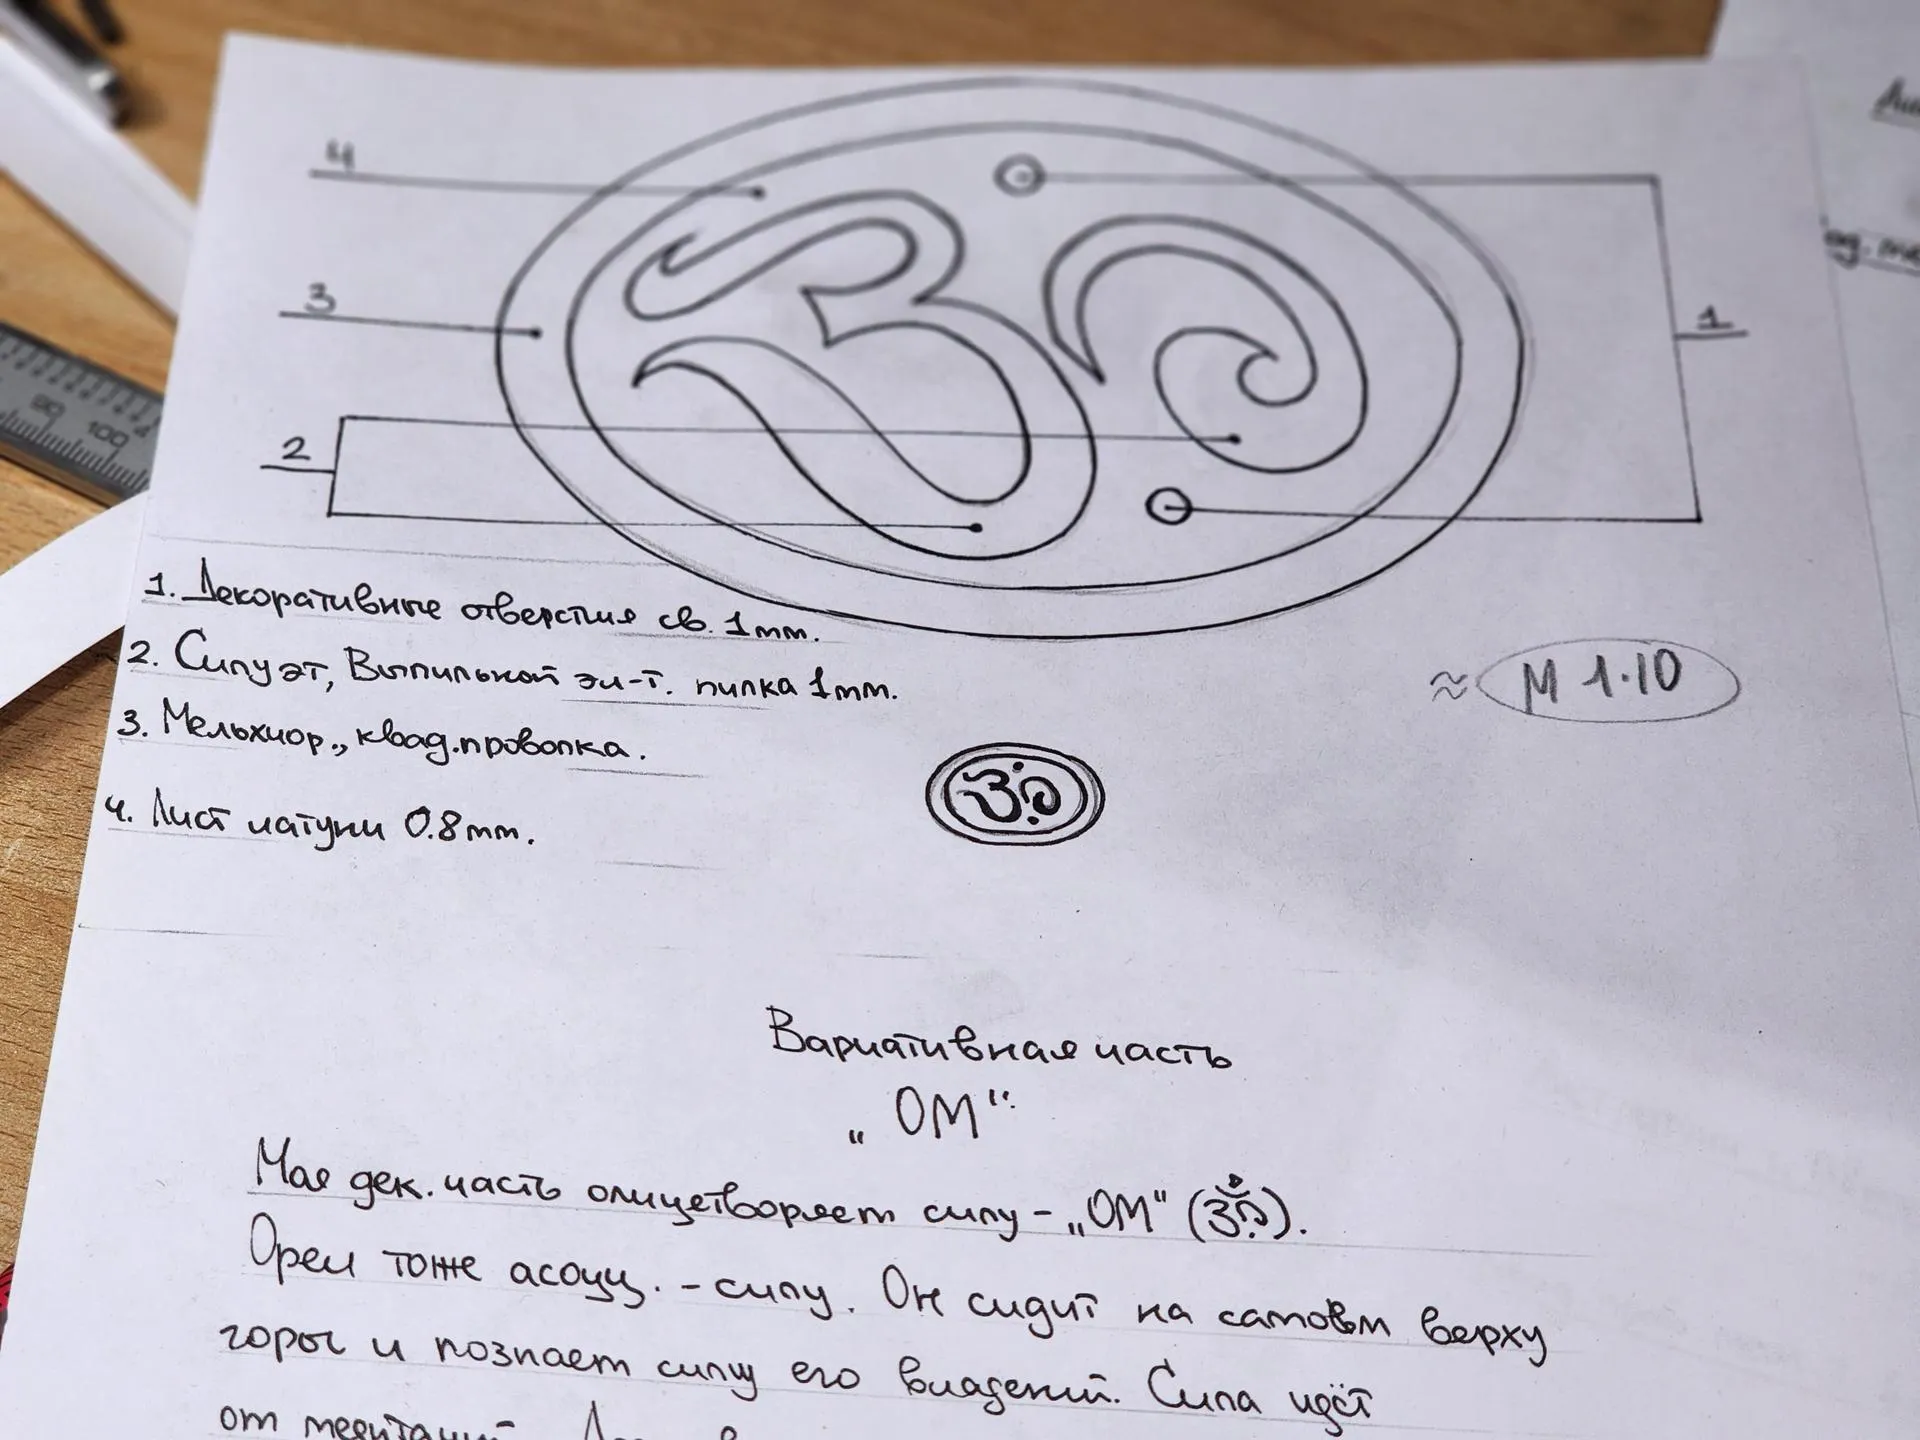 4
3
2
1
1. Декоративные отверстия св. 1mm.
2. Силуэт, Выпильной эл-т. пилка 1mm.
3. Мельхиор., квад.проволка.
4. Лист латуни 0.8mm.
≈ М 1.10
Вариативная часть
„ОМ“
Мая дек. часть олицетворяет силу - „ОМ“ (ॐ).
Орел тоже асоцц. - силу. Он сидит на самовм верху
горы и познает силу его владений. Сила идёт
от
50
100